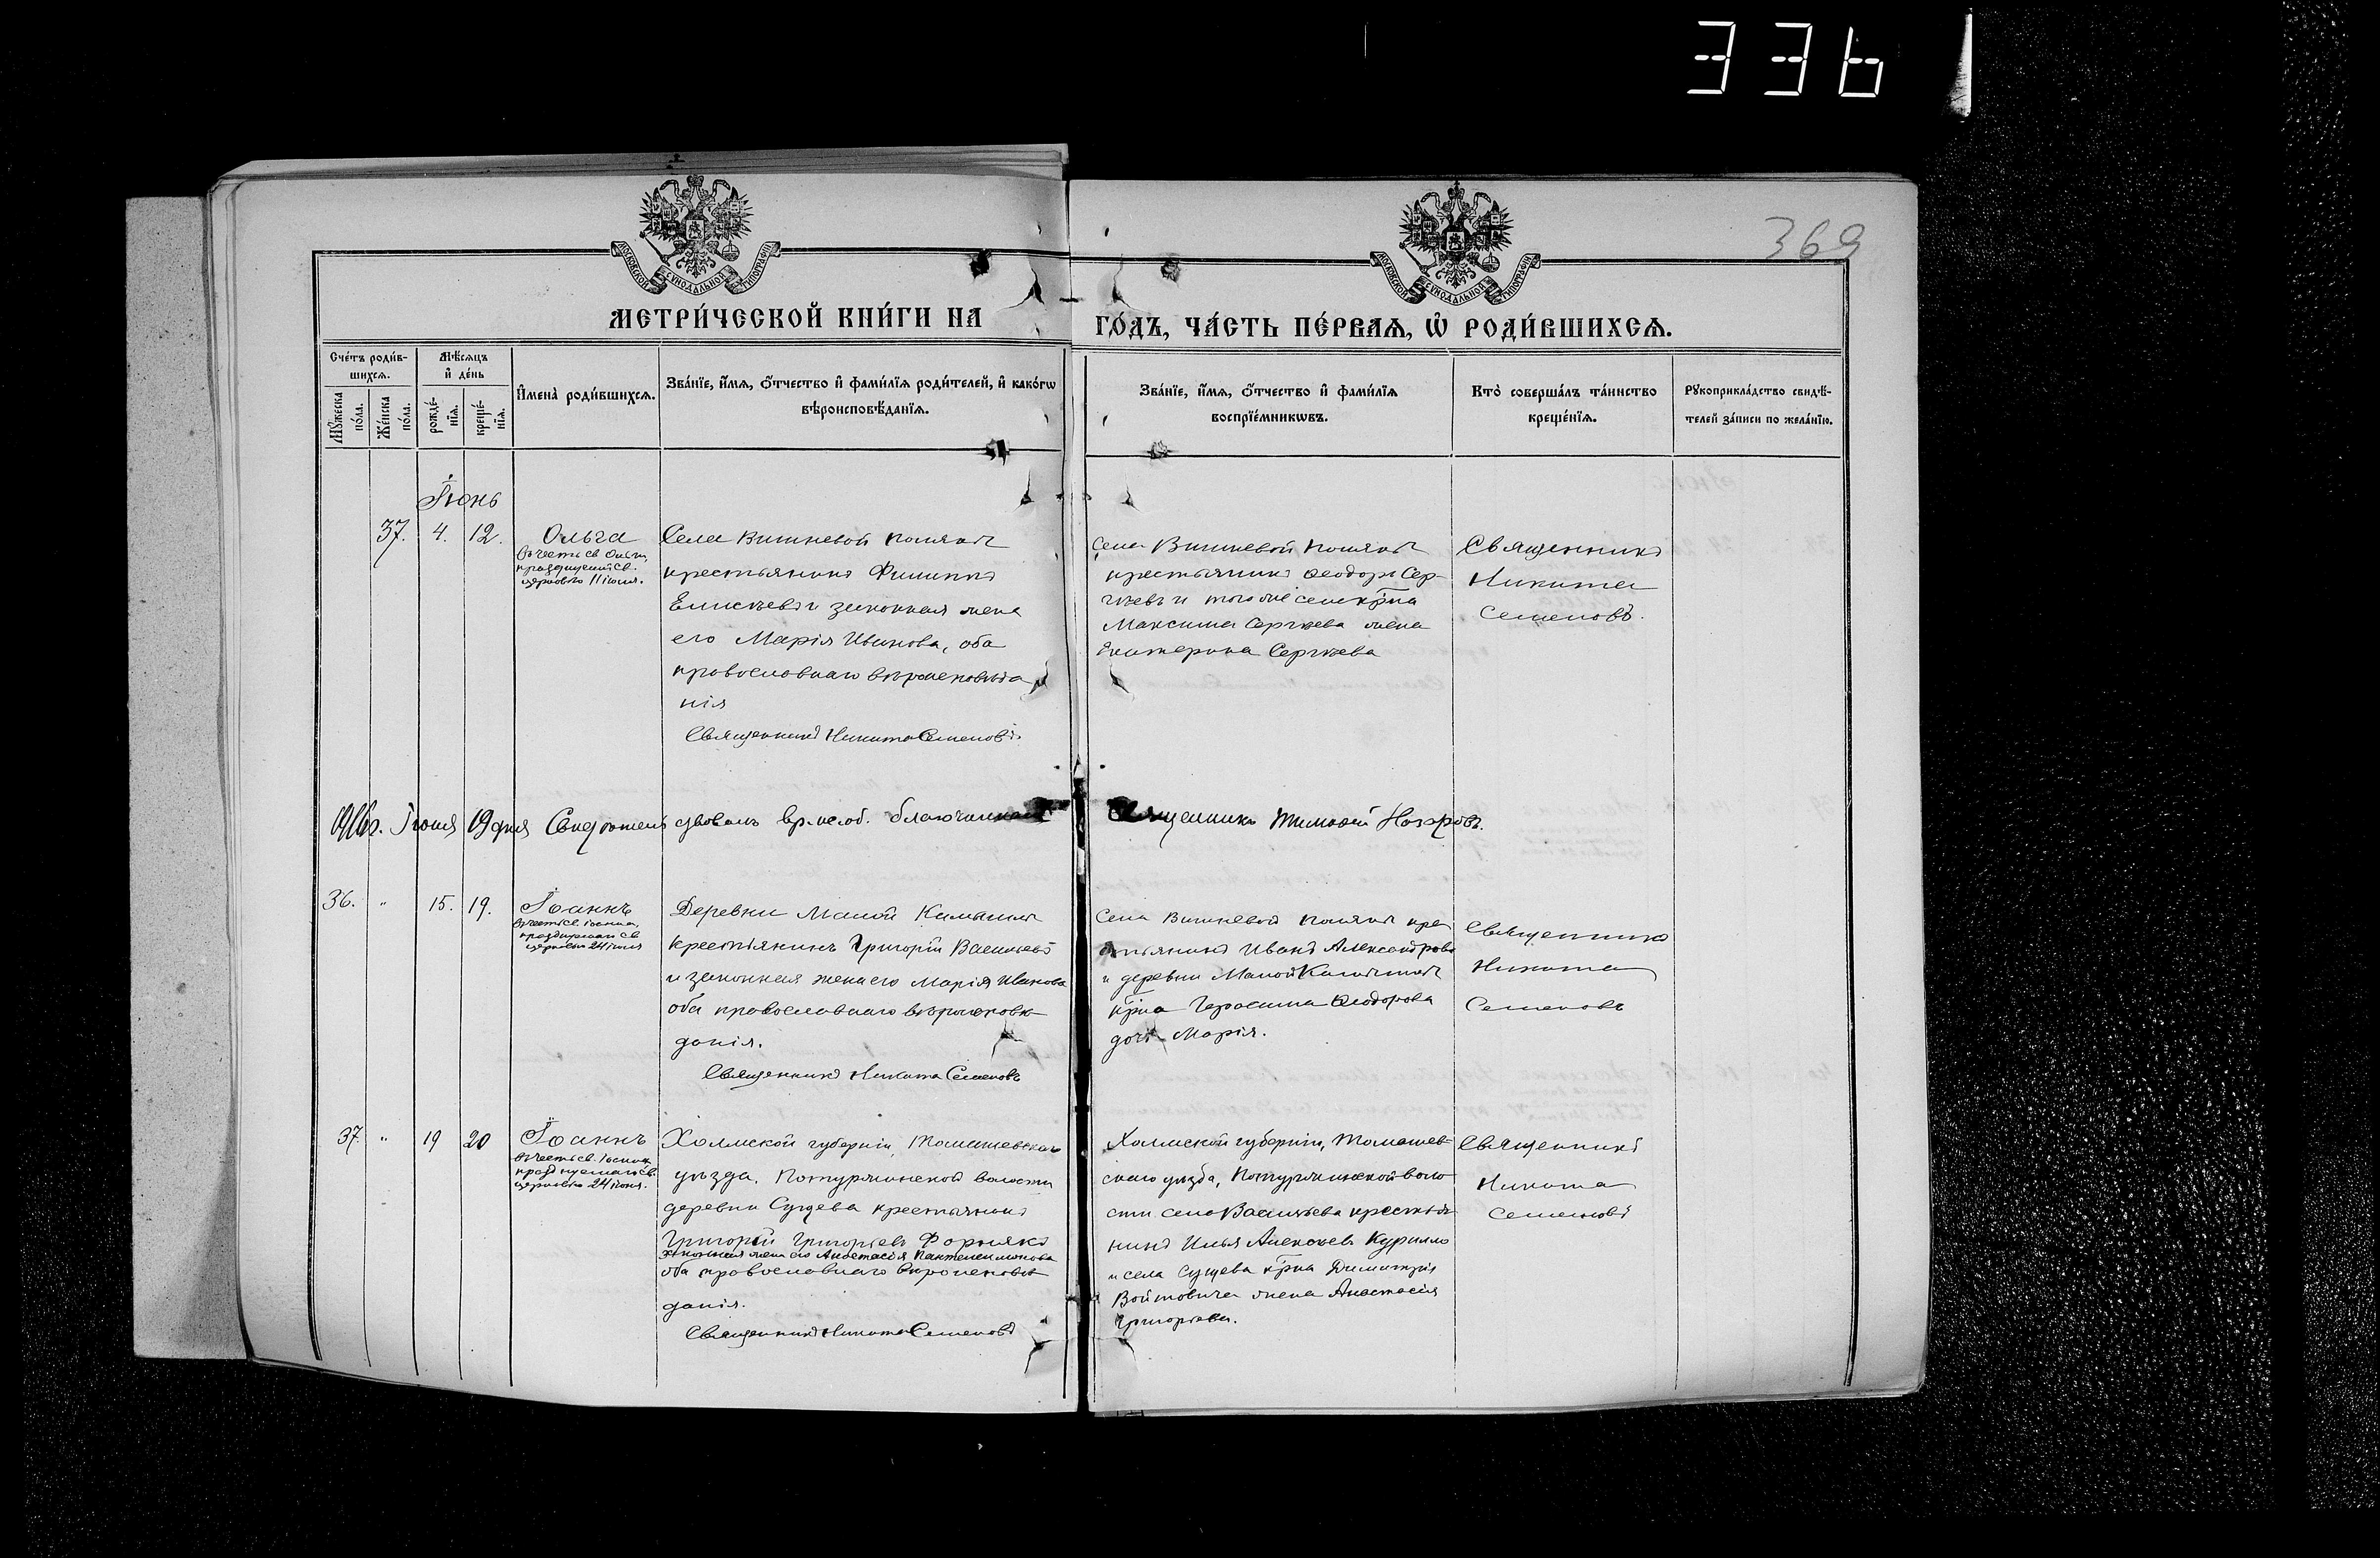 336
369
МОСКОВСКОЙ СѴНОДАЛЬНОЙ ТИПОГРАФІИ
МОСКОВСКОЙ СѴНОДАЛЬНОЙ ТИПОГРАФІИ
МЕТРИ́ЧЕСКОЙ КНИ́ГИ НА
ГО́ДЪ, ЧА́СТЬ ПЕ́РВАѦ, Ѽ РОДИ́ВШИХСѦ.
Сче́тъ роди́в-
шихсѧ.
Мѣ́сѧцъ
и҆ де́нь
Мꙋ́жеска
по́ла.
Же́нска
по́ла.
рожде́-
нїѧ.
креще́-
нїѧ.
И҆мена̀ роди́вшихсѧ.
Зва́нїе, и҆́мѧ, ѻ҆́тчество и҆ фами́лїѧ роди́телей, и҆ како́гѡ
вѣроисповѣ́данїѧ.
Зва́нїе, и҆́мѧ, ѻ҆́тчество и҆ фами́лїѧ
воспрїе́мникѡвъ.
Кто̀ соверша́лъ та́инство
креще́нїѧ.
Рꙋкоприкла́дство свидѣ́-
телей за́писи по жела́нїю.
Іюнь
37. 4. 12. Ольга
въ честь св. Ольги,
празднуемой св.
церковью 11 іюля.
Села Вишневой Поляны
крестьянинъ Филиппъ
Елисѣевъ и законная жена
его Марія Иванова, оба
православнаго вѣроисповѣда
нія
Священникъ Никита Семеновъ.
Села Вишневой Поляны
крестьянинъ Ѳеодоръ Сер-
гѣевъ и того же села кр-на
Максима Сергѣева жена
Екатерина Сергѣева
Священникъ
Никита
Семеновъ.
1916 г. Іюня 19 дня Свидѣтельствовалъ вр. исп. об. благочиннаго
Священникъ Тимоѳей
36. " 15. 19. Іоаннъ
въ честь св. Іоанна,
празднуемаго св.
церковью 24 іюня
Деревни Малой
крестьянинъ Григорій Васильевъ
и законная жена его Марія Иванова
оба православнаго вѣроисповѣ
данія.
Священникъ Никита Семеновъ
Села Вишневой Поляны кре
стьянинъ Иванъ Александровъ
и деревни Малой
кр-на Герасима Ѳеодорова
дочь Марія.
Священникъ
Никита
Семеновъ
37. " 19 20 Іоаннъ
въ честь св. Іоанна,
празднуемаго св.
церковью 24 іюня.
Холмской губерніи, Томашевскаго
уѣзда, Потуржинской волости
деревни Сущева крестьянинъ
Григорій Григорьевъ Форнякъ
законная жена его Анастасія Пантелеимонова
оба православнаго вѣроисповѣ
данія.
Священникъ Никита Семеновъ
Холмской губерніи, Томашев-
скаго уѣзда, Потуржинской воло
сти села Васильева крестья
нинъ Илья Алексѣевъ Курилло
и села Сущева кр-на Димитрія
Войтовича жена Анастасія
Григорьева.
Священникъ
Никита
Семеновъ